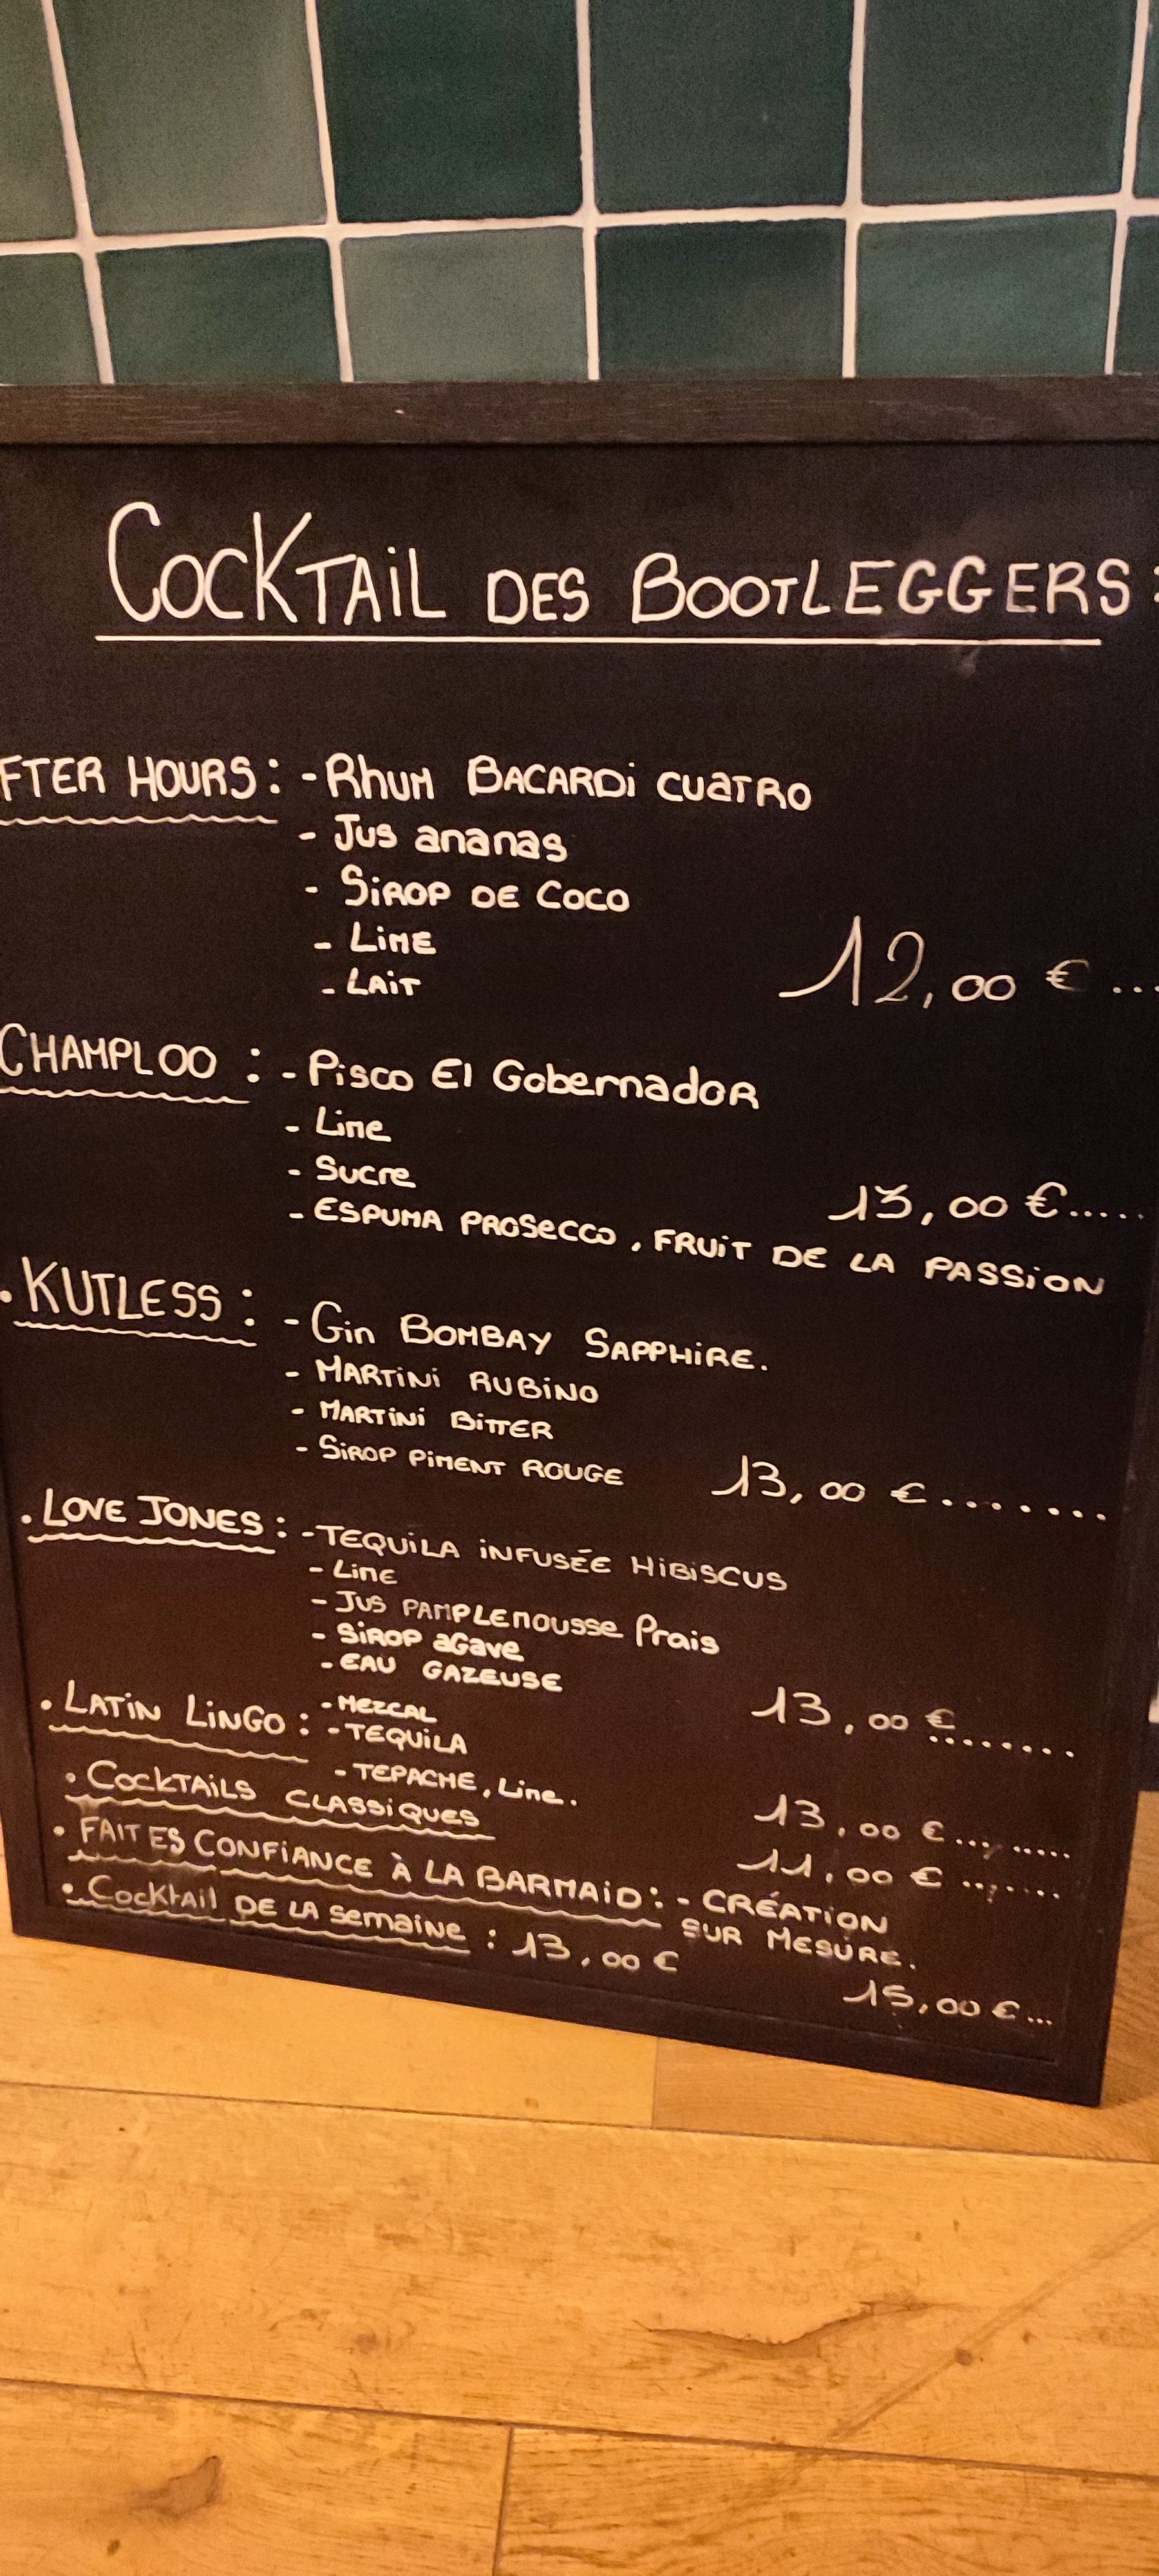 COCKTAIL DES BOOTLEGGERS :
FTER HOURS : - Rhum BACARDI CUATRO
- Jus ananas
- SIROP DE COCO
- LIME
- LAIT
12,00 € ...
CHAMPLOO : - Pisco El Gobernador
- Lime
- Sucre
13,00 € .....
- ESPUMA PROSECCO, FRUIT DE LA PASSION
. KUTLESS : - Gin BOMBAY SAPPHIRE.
- MARTINI RUBINO
- MARTINI BITTER
- SIROP PIMENT ROUGE 13,00 € ........
. LOVE JONES : - TEQUILA INFUSÉE HIBISCUS
- Lime
- Jus PAMPLEMOUSSE Frais
- SIROP AGAVE
- EAU GAZEUSE
13,00 € ........
. LATIN LINGO : - MEZCAL
- TEQUILA
- TEPACHE, Lime.
13,00 € ........
. COCKTAILS CLASSIQUES
11,00 € ........
. FAITES CONFIANCE À LA BARMAID : - CRÉATION
SUR MESURE.
15,00 € ...
. Cocktail DE LA semaine : 13,00 €